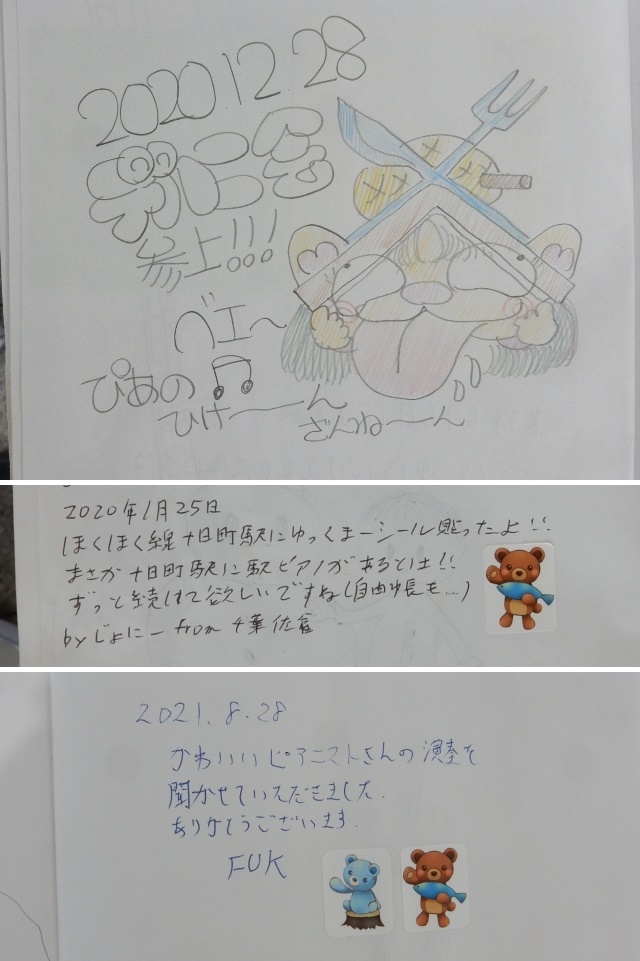 2020 12.28
参上!!!
べエ〜
ぴあの
ひけ〜ん
ざんね〜ん
2020年1月25日
ほくほく線十日町駅にゆっくまーシール貼ったよ!!
まさか十日町駅に駅ピアノがあるとは!!
ずっと続けて欲しいですね(自由帳も…)
byじょにー from 千葉佐倉
2021.8.28
かわいいピアニストさんの演奏を
聞かせていただきました.
ありがとうございます.
FUK